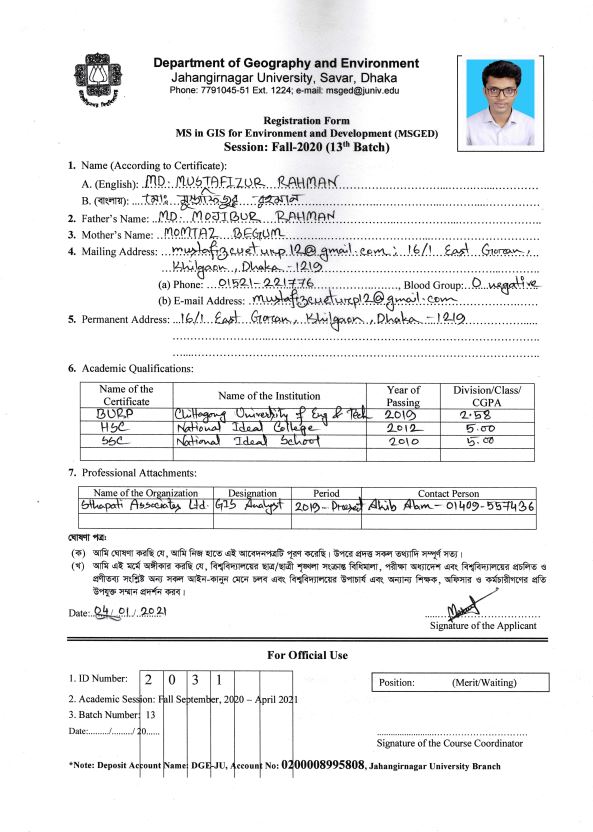 Department of Geography and Environment
Jahangirnagar University, Savar, Dhaka
Phone: 7791045-51 Ext. 1224; e-mail: msged@juniv.edu
Registration Form
MS in GIS for Environment and Development (MSGED)
Session: Fall-2020 (13th Batch)
1. Name (According to Certificate):
A. (English): MD. MUSTAFIZUR RAHMAN
B. (বাংলায়): মোঃ মুস্তাফিজুর রহমান
2. Father's Name: MD. MOJIBUR RAHMAN
3. Mother's Name: MOMTAZ BEGUM
4. Mailing Address: mustafizcueturp12@gmail.com; 16/1 East Goran,
Khilgaon, Dhaka-1219
(a) Phone: 01521-221776, Blood Group: O negative
(b) E-mail Address: mustafizcueturp12@gmail.com
5. Permanent Address: 16/1 East Goran, Khilgaon, Dhaka-1219
6. Academic Qualifications:
Name of the Certificate Name of the Institution Year of Passing Division/Class/ CGPA
BURP Chittagong University of Eng & Tech 2019 2.58
HSC National Ideal College 2012 5.00
SSC National Ideal School 2010 5.00
7. Professional Attachments:
Name of the Organization Designation Period Contact Person
Sthapati Associates Ltd. GIS Analyst 2019-Present Ahib Alam-01409-557436
ঘোষণা পত্র:
(ক) আমি ঘোষণা করছি যে, আমি নিজ হাতে এই আবেদনপত্রটি পূরণ করেছি। উপরে প্রদত্ত সকল তথ্যাদি সম্পূর্ণ সত্য।
(খ) আমি এই মর্মে অঙ্গীকার করছি যে, বিশ্ববিদ্যালয়ের ছাত্র/ছাত্রী শৃঙ্খলা সংক্রান্ত বিধিমালা, পরীক্ষা অধ্যাদেশ এবং বিশ্ববিদ্যালয়ের প্রচলিত ও
প্রণীতব্য সংশ্লিষ্ট অন্য সকল আইন-কানুন মেনে চলব এবং বিশ্ববিদ্যালয়ের উপাচার্য এবং অন্যান্য শিক্ষক, অফিসার ও কর্মচারীগণের প্রতি
উপযুক্ত সম্মান প্রদর্শন করব।
Date: 04/01/2021
Signature of the Applicant
For Official Use
1. ID Number: 2 0 3 1
Position: (Merit/Waiting)
2. Academic Session: Fall September, 2020 – April 2021
3. Batch Number: 13
Date:........./........./ 20......
Signature of the Course Coordinator
*Note: Deposit Account Name: DGE-JU, Account No: 0200008995808, Jahangirnagar University Branch